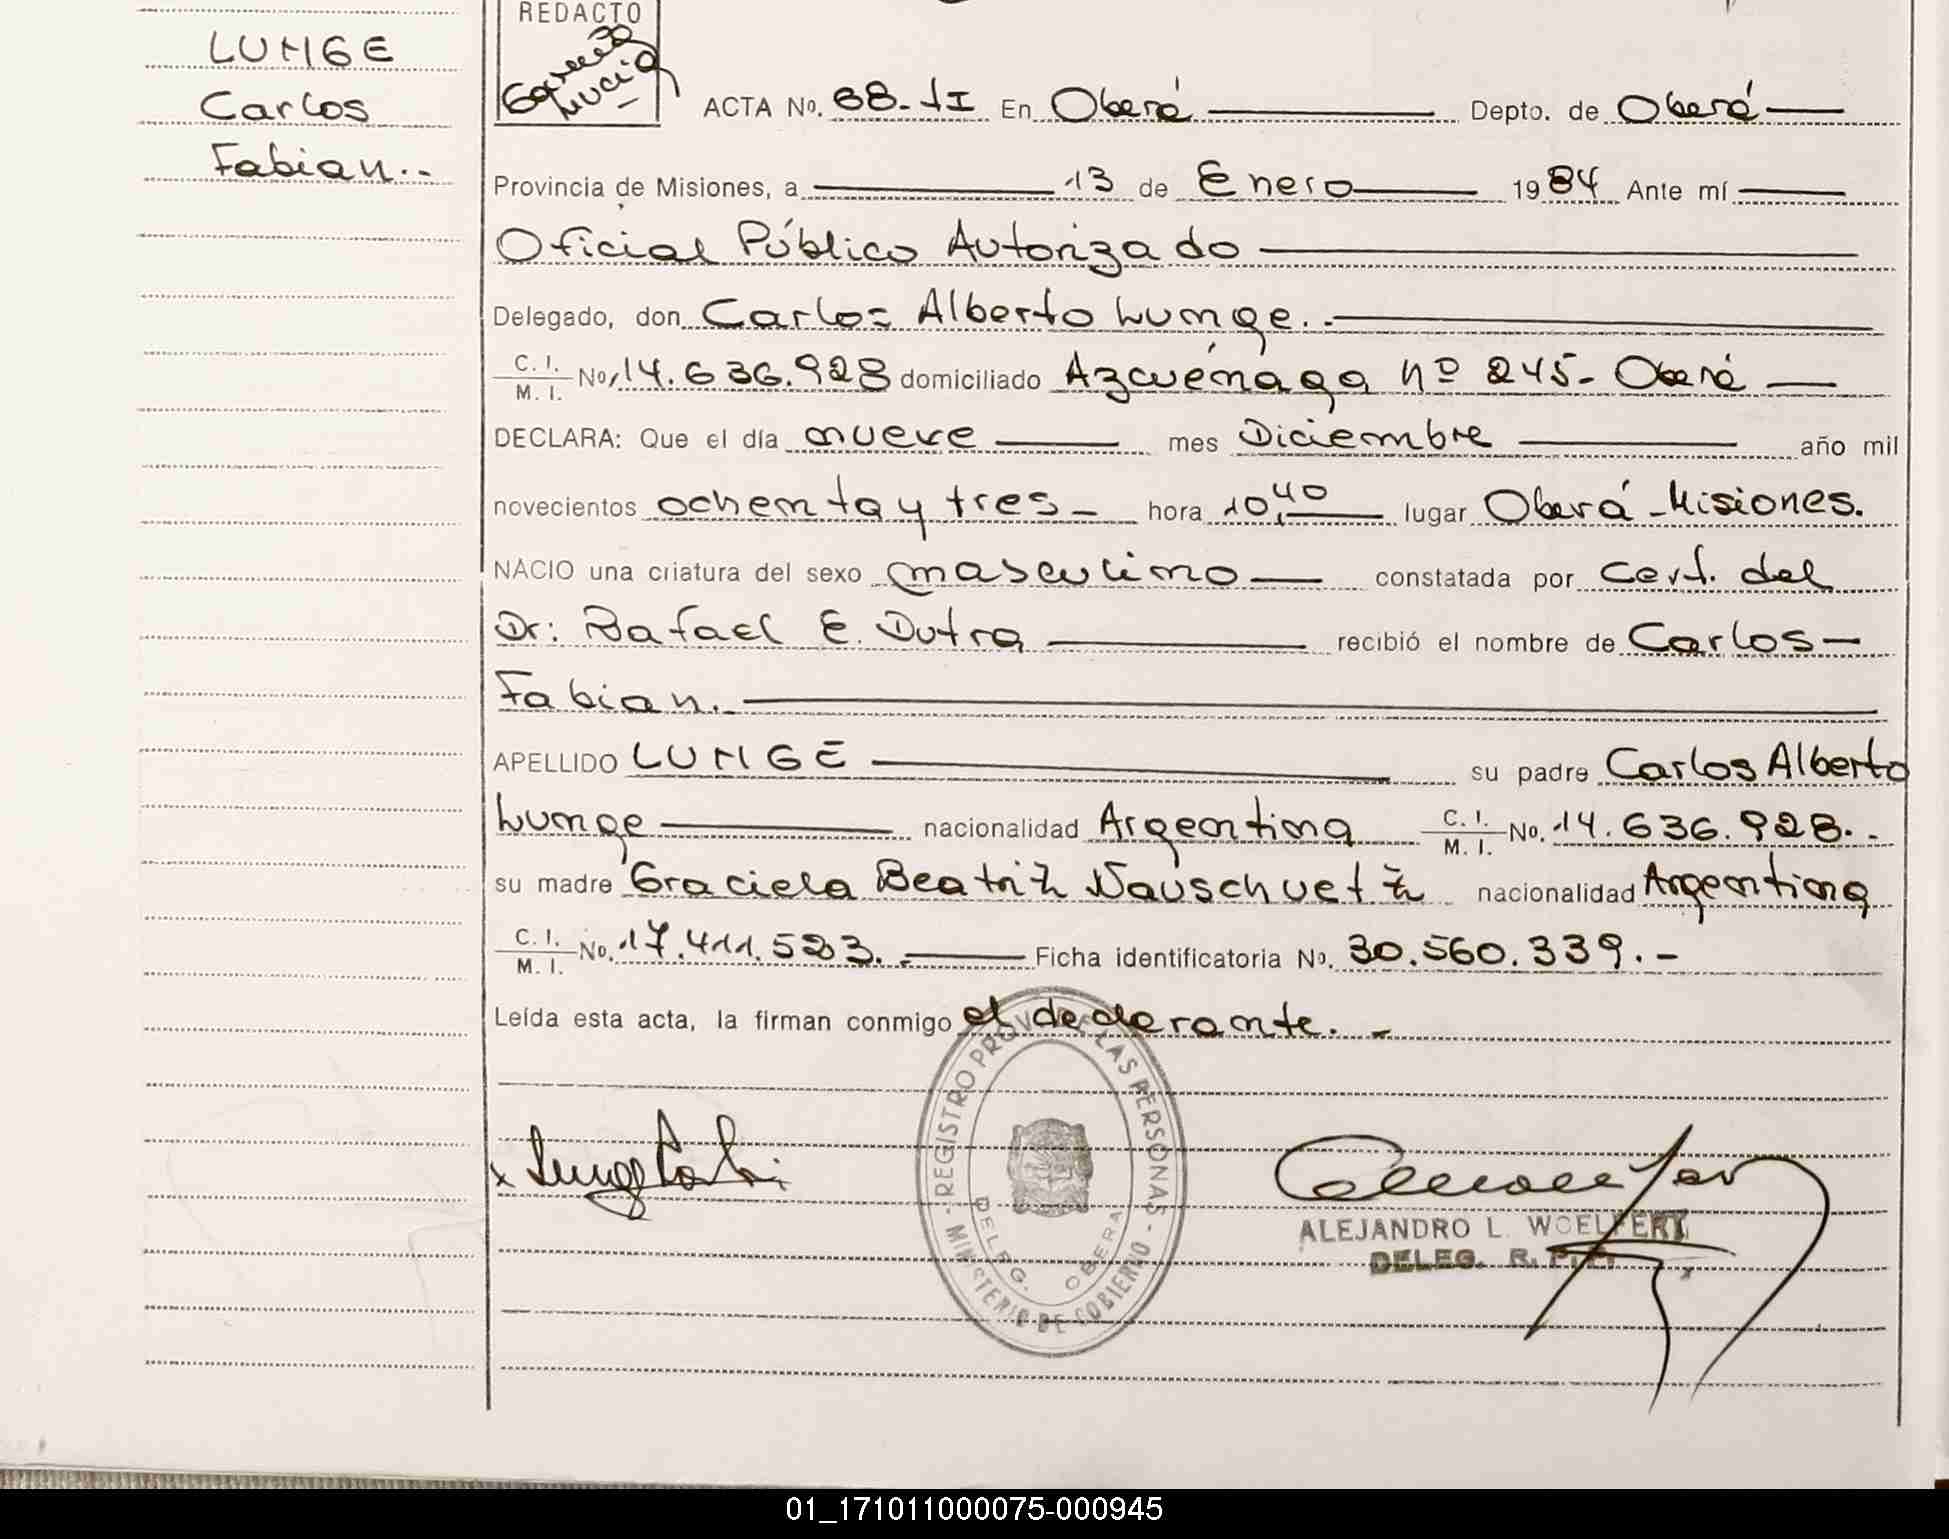 LUNGE
Carlos
Fabian.-
REDACTO
García
Lucia
ACTA No. 88-II En Oberá Depto. de Oberá
Provincia de Misiones, a 13 de Enero 1984 Ante mí
Oficial Público Autorizado
Delegado, don Carlos Alberto Lunge.-
C. I.
M. I. No. 14.636.928 domiciliado Azcuénaga nº 245- Oberá
DECLARA: Que el día nueve mes Diciembre año mil
novecientos ochenta y tres- hora 10,40 lugar Oberá-Misiones.
NACIO una criatura del sexo masculino constatada por Cert. del
Dr: Rafael E. Dutra recibió el nombre de Carlos-
Fabian.
APELLIDO LUNGE su padre Carlos Alberto
Lunge nacionalidad Argentina C. I. M. I. No. 14.636.928.-
su madre Graciela Beatriz Nauschuetz nacionalidad Argentina
C. I.
M. I. No. 17.411.523.- Ficha identificatoria No. 30.560.339.-
Leída esta acta, la firman conmigo el declarante.-
REGISTRO PROV. DE LAS PERSONAS - MINISTERIO DE GOBIERNO -
DELEG. OBERA
x Lunge Carlos
ALEJANDRO L. WOELFERT
DELEG. R. P. P.
01_171011000075-000945